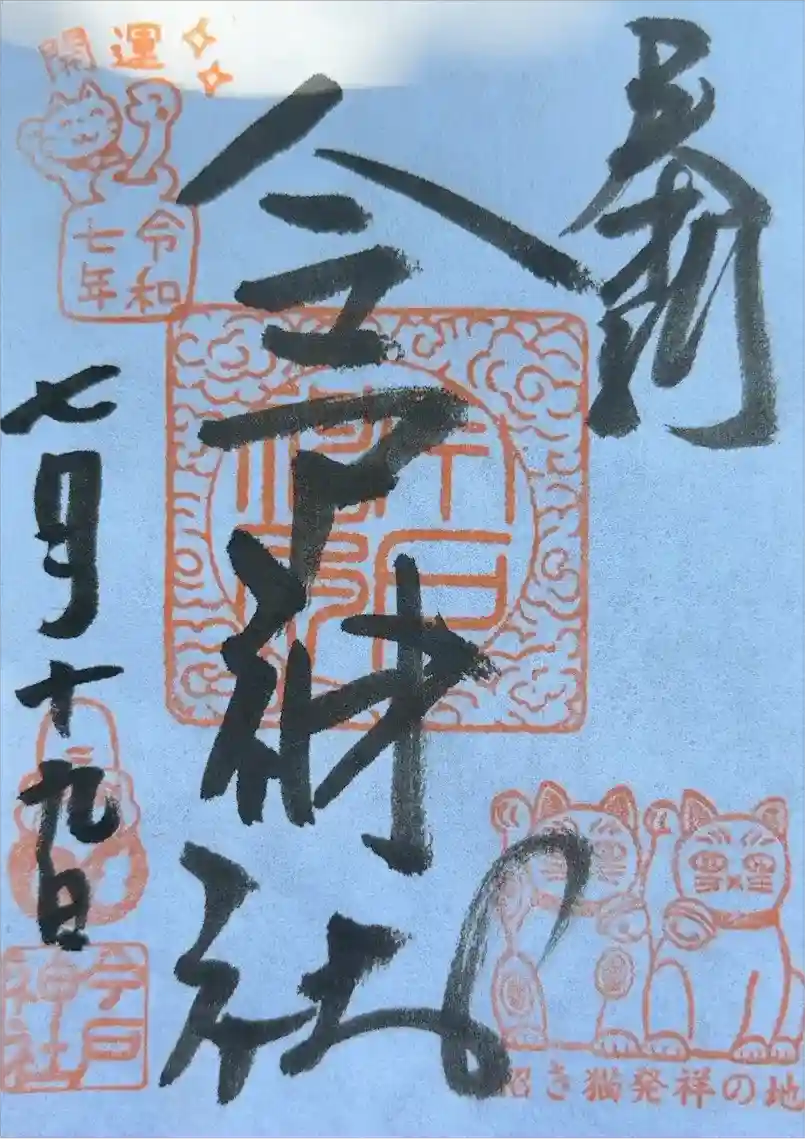 奉拝
今戸神社
七月十九日
開運
令和
七年
今戸
神社
招き猫発祥の地